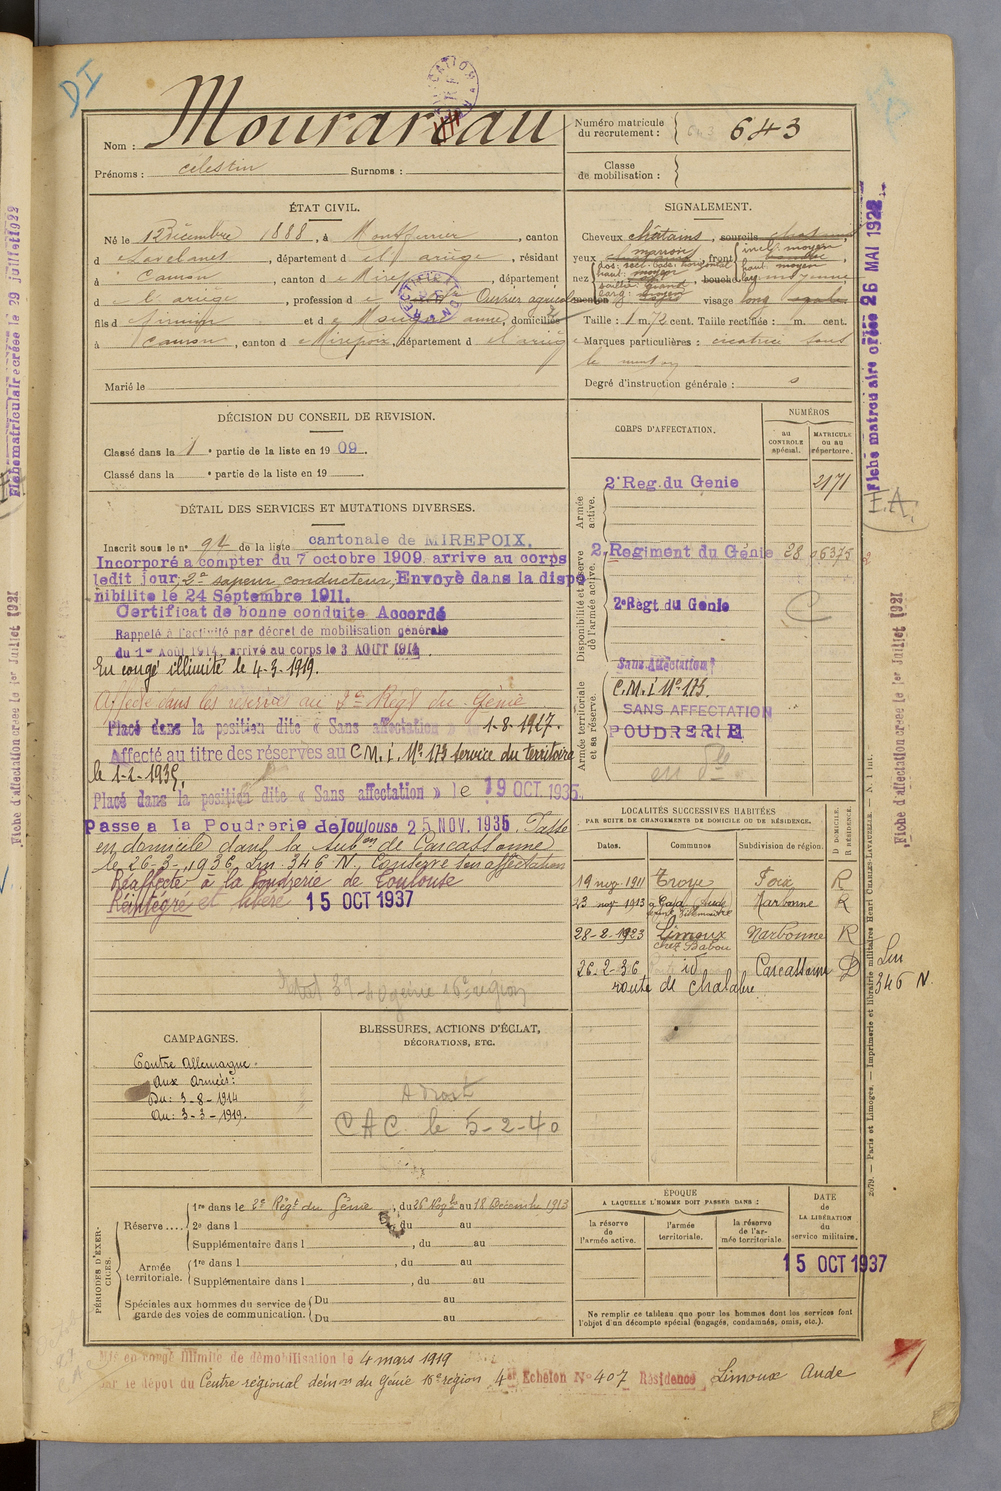 DI
Nom : Mourareau
Prénoms : celestin Surnoms :
Numéro matricule du recrutement : 643
Classe de mobilisation :
ÉTAT CIVIL.
Né le 12 Décembre 1888, à Montferrier, canton
d e Lavelanet, département d e l'ariège, résidant
à Camon, canton d e Mirepoix, département
d e l'ariège, profession d e Ouvrier agricole
fils d e firmin et d e anne, domiciliés
à Camon, canton d e Mirepoix, département d e l'ariège
Marié le
SIGNALEMENT.
Cheveux châtains, sourcils
yeux marron, front incl: moyen haut. moyen larg: moyenne
nez dos: rect. base: horizontal haut: moyen saillie: grante larg: moyen, bouche
menton visage long
Taille : 1 m. 72 cent. Taille rectifiée : m. cent.
Marques particulières : cicatrice sous
le menton
Degré d'instruction générale :
DÉCISION DU CONSEIL DE REVISION.
Classé dans la 1e partie de la liste en 1909.
Classé dans la e partie de la liste en 19
CORPS D'AFFECTATION.
NUMÉROS
au CONTROLE spécial.
MATRICULE ou au répertoire.
Armée active.
2e Reg. du Genie 2171
Disponibilité et réserve de l'armée active.
2e Regiment du Génie 28 06375
2e Régt du Genie
Armée territoriale et sa réserve.
Sans Affectation
C.M.I No 173.
SANS AFFECTATION
POUDRERIE
DÉTAIL DES SERVICES ET MUTATIONS DIVERSES.
Inscrit sous le no 94 de la liste cantonale de MIREPOIX.
Incorporé a compter du 7 octobre 1909 arrive au corps
ledit jour, 2e sapeur conducteur, Envoyé dans la dispo
nibilite le 24 Septembre 1911.
Certificat de bonne conduite Accordé
Rappelé à l'activité par décret de mobilisation générale
du 1er Août 1914, arrivé au corps le 3 AOUT 1914
En congé illimité le 4-3-1919.
Affecté dans les réserves au 2e Régt du Génie
Placé dans la position dite « Sans affectation » 1-8-1927.
Affecté au titre des réserves au C.M.I. No 173 service du territoire
le 1-1-1935,
Placé dans la position dite « Sans affectation » le 19 OCT. 1935.
Passe a la Poudrerie de Toulouse 25 NOV. 1935. Passé
en domicile dans la Subon de Carcassonne
le 26-3-1936, Lin. 346 N. Conserve son affectation
Réaffecté à la Poudrerie de Toulouse
Réintégré et libéré 15 OCT 1937
LOCALITÉS SUCCESSIVES HABITÉES
PAR SUITE DE CHANGEMENTS DE DOMICILE OU DE RÉSIDENCE.
Dates. Communes Subdivision de région. D DOMICILE. R RÉSIDENCE.
19 nov. 1911 Troye Foix R
23 nov. 1913 Gaja Aude Narbonne R
28-2-1923 Limoux chez Babou Narbonne R
26-2-36 id Carcassonne D
route de Chalabre
Lin 346 N.
CAMPAGNES.
Contre Allemagne.
Aux Armées:
Du: 3-8-1914
Au: 3-3-1919.
BLESSURES, ACTIONS D'ÉCLAT,
DÉCORATIONS, ETC.
A Droit
CAC le 5-2-40
PÉRIODES D'EXERCICES.
Réserve .... 1re dans le 2e Régt du Génie, du 26 Novbre au 18 Décembre 1913
2e dans l , du au
Supplémentaire dans l , du au
Armée territoriale. 1re dans l , du au
Supplémentaire dans l , du au
Spéciales aux hommes du service de garde des voies de communication. Du au
Du au
ÉPOQUE
A LAQUELLE L'HOMME DOIT PASSER DANS :
la réserve de l'armée active.
l'armée territoriale.
la réserve de l'armée territoriale.
DATE de LA LIBÉRATION du service militaire.
15 OCT 1937
Ne remplir ce tableau que pour les hommes dont les services font
l'objet d'un décompte spécial (engagés, condamnés, omis, etc.).
Mis en congé illimité de démobilisation le 4 mars 1919
par le dépôt du Centre régional démon du Génie 16e région 4er Echelon No 407 Résidence Limoux Aude
Fiche matriculaire créée le 29 juillet 1922
Fiche d'affectation créée le 1er Juillet 1921
Fiche matriculaire créée 26 MAI 1922
E.A.
Fiche d'affectation créée le 1er Juillet 1921
2679. — Paris et Limoges. — Imprimerie et librairie militaires Henri CHARLES-LAVAUZELLE. — N. 1 int.